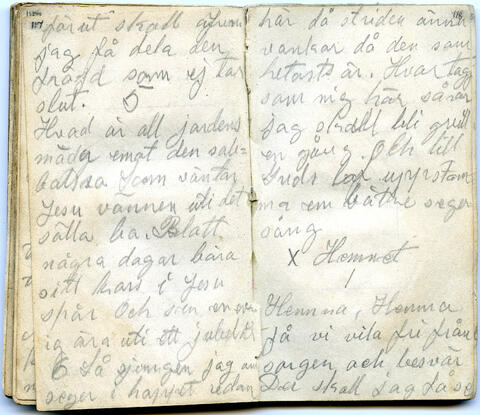 förut skall
jag få dela den
fröjd som ej tar
slut. 5
Hvad är all jordens
möder emot den sab-
som väntar
Jesu vännen uti det
sälla ha Blott
några dagar bära
sitt kors i Jesu
spår Och sen en
ig ära uti ett jubel
6 Så sjunger jag om
seger i hoppet redan
här då striden ännu
vankar då den som
hetast är. Hvar tagg
som mig här sårar
jag skall bli qvitt
en gång Och till
Guds lof uppstäm
ma en bättre seger
sång
X Hemmet
1
Hemma, Hemma
få vi vila fri från
sorgen och besvär
Der skall jag få se